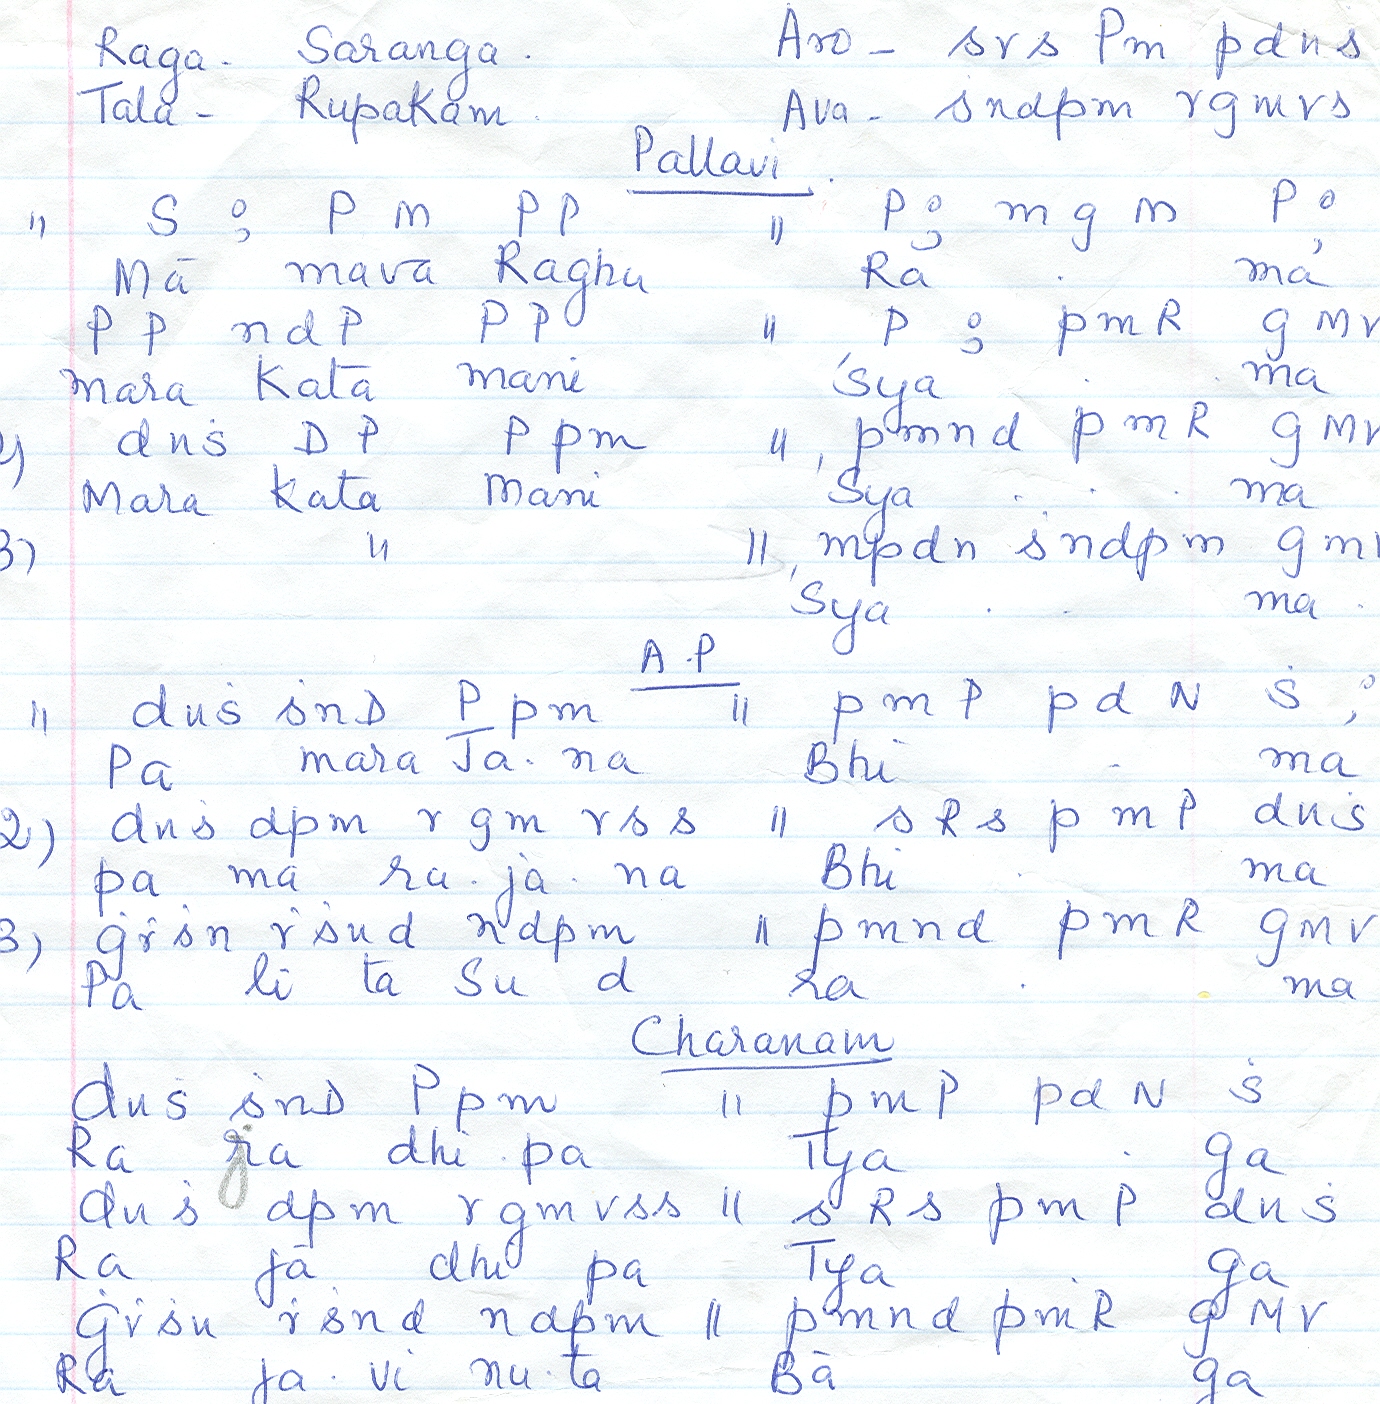 Raga - Saranga. Aro - s r s P m p d n s
Tala - Rupakam. Ava - ṡ n d p m r g m r s
Pallavi.
" S ; P M P P " P ; m g M P ;
Mā mava Raghu Ra . ma
P P n d P P P " P ; p m R g M r
mara Kata mani 'Sya . . ma
2) d n ṡ D P P p m ", p m n d p m R g M r
Mara Kata Mani Sya . . . ma
3) " ", m p d n ṡ n d p m g m r
'Sya . . ma .
A.P
" d n ṡ ṡ n D P p m " p m P p d N Ṡ ;
Pa mara Ja. na Bhi . ma
2) d n ṡ d p m r g m r s s " s R s p m P d n ṡ
pa ma ra. ja. na Bhi . ma
3) ġ ṙ ṡ n ṙ ṡ n d n d p m " p m n d p m R g M r
Pa li ta Su d ra . ma
Charanam
d n ṡ ṡ n D P p m " p m P p d N Ṡ
Ra ja dhi. pa Tya . ga
d n ṡ d p m r g m r s s " s R s p m P d n ṡ
Ra jā dhi pa Tya ga
ġ ṙ ṡ n ṙ ṡ n d n d p m " p m n d p m R g M r
Ra ja. vi nu. ta Bā ga